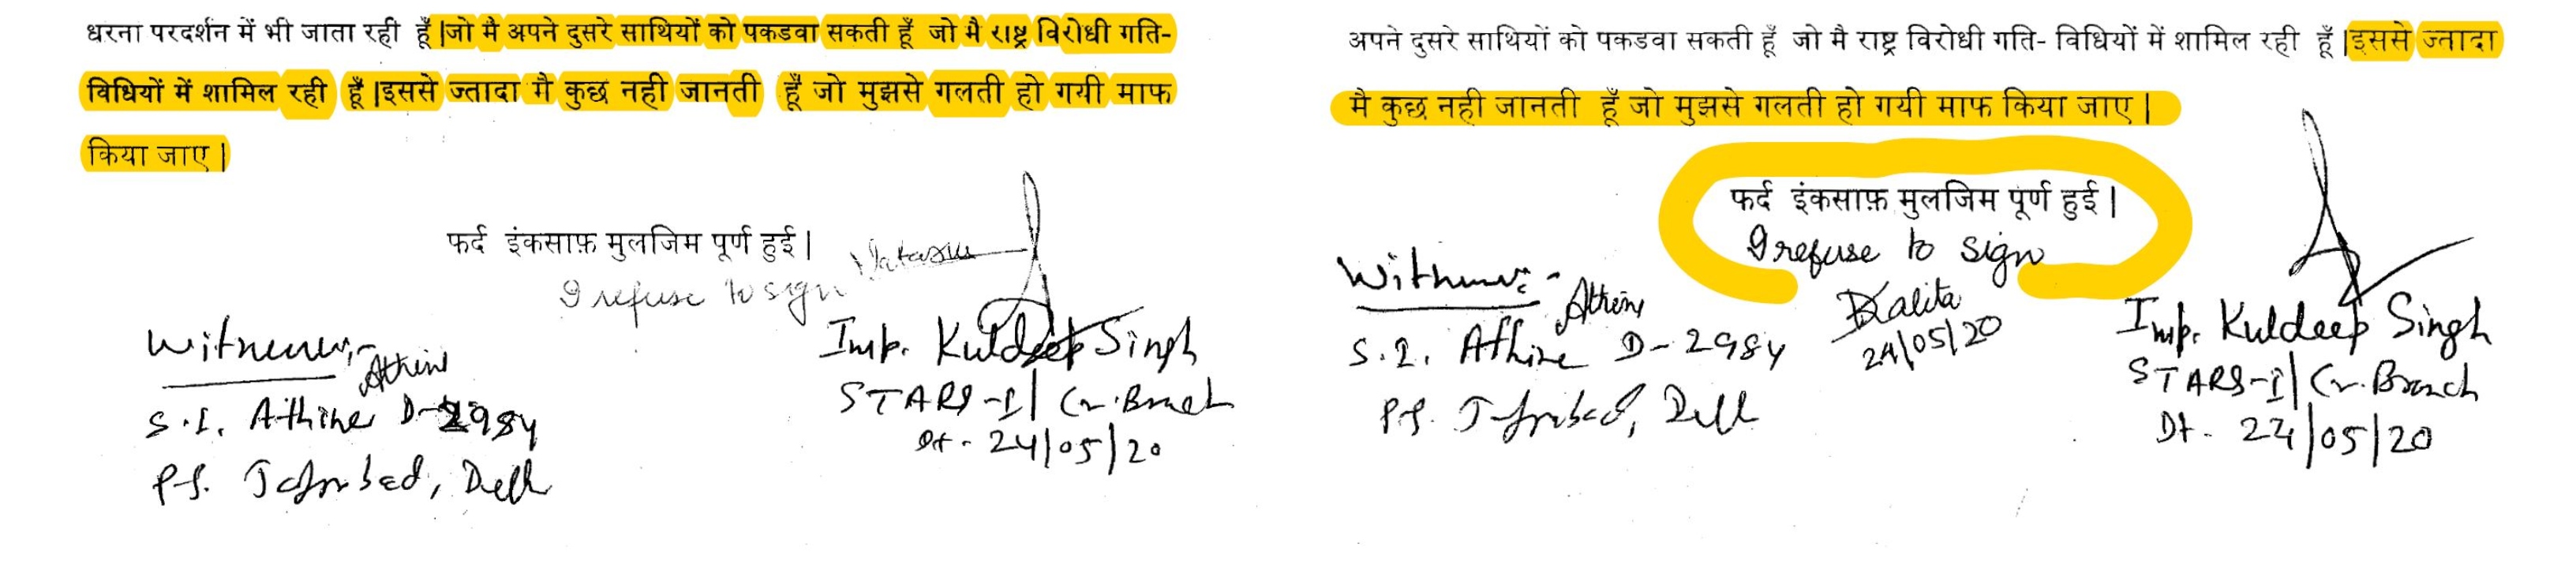 धरना परदर्शन में भी जाता रही हूँ|जो मै अपने दुसरे साथियों को पकडवा सकती हूँ जो मै राष्ट्र विरोधी गति-
विधियों में शामिल रही हूँ|इससे ज्तादा मै कुछ नही जानती हूँ जो मुझसे गलती हो गयी माफ
किया जाए|
फर्द इंकसाफ़ मुलजिम पूर्ण हुई|
I refuse to sign Natasha
Witness:-
Athine
S.I. Athine D-2984
P.S. Jafrabad, Delhi
Insp. Kuldeep Singh
STARS-I/Cr. Branch
Dt- 24/05/20
अपने दुसरे साथियों को पकडवा सकती हूँ जो मै राष्ट्र विरोधी गति- विधियों में शामिल रही हूँ|इससे ज्तादा
मै कुछ नही जानती हूँ जो मुझसे गलती हो गयी माफ किया जाए|
फर्द इंकसाफ़ मुलजिम पूर्ण हुई|
I refuse to sign
DKalita
24/05/20
Witness:-
Athine
S.I. Athine D-2984
P.S. Jafrabad, Delhi
Insp. Kuldeep Singh
STARS-I/Cr. Branch
Dt- 24/05/20